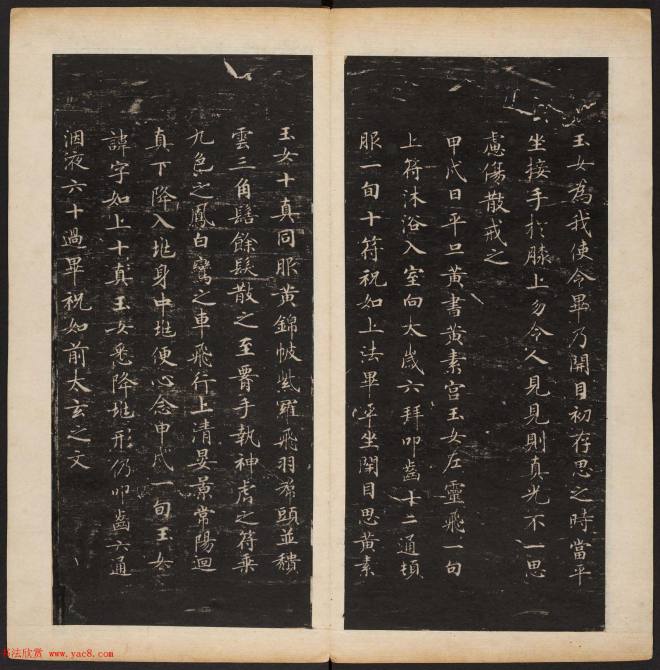 玉女為我使令畢乃開目初存思之時當平
坐接手於膝上勿令人見見則真光不一思
慮傷散戒之
甲戌日平旦黃書黃素宮玉女左靈飛一旬
上符沐浴入室向太歲六拜叩齒十二通頓
服一旬十符祝如上法畢平坐閉目思黃素
玉女十真同服黃錦帔紫羅飛羽帬頭並穨
雲三角髻餘髮散之至要手執神虎之符乘
九色之鳳白鸞之車飛行上清晏景常陽迴
真下降入垗身中垗便心念甲戌一旬玉女
諱字如上十真玉女悉降垗形仍叩齒六通
咽液六十過畢祝如前太玄之文
书法欣赏 www.yac8.com